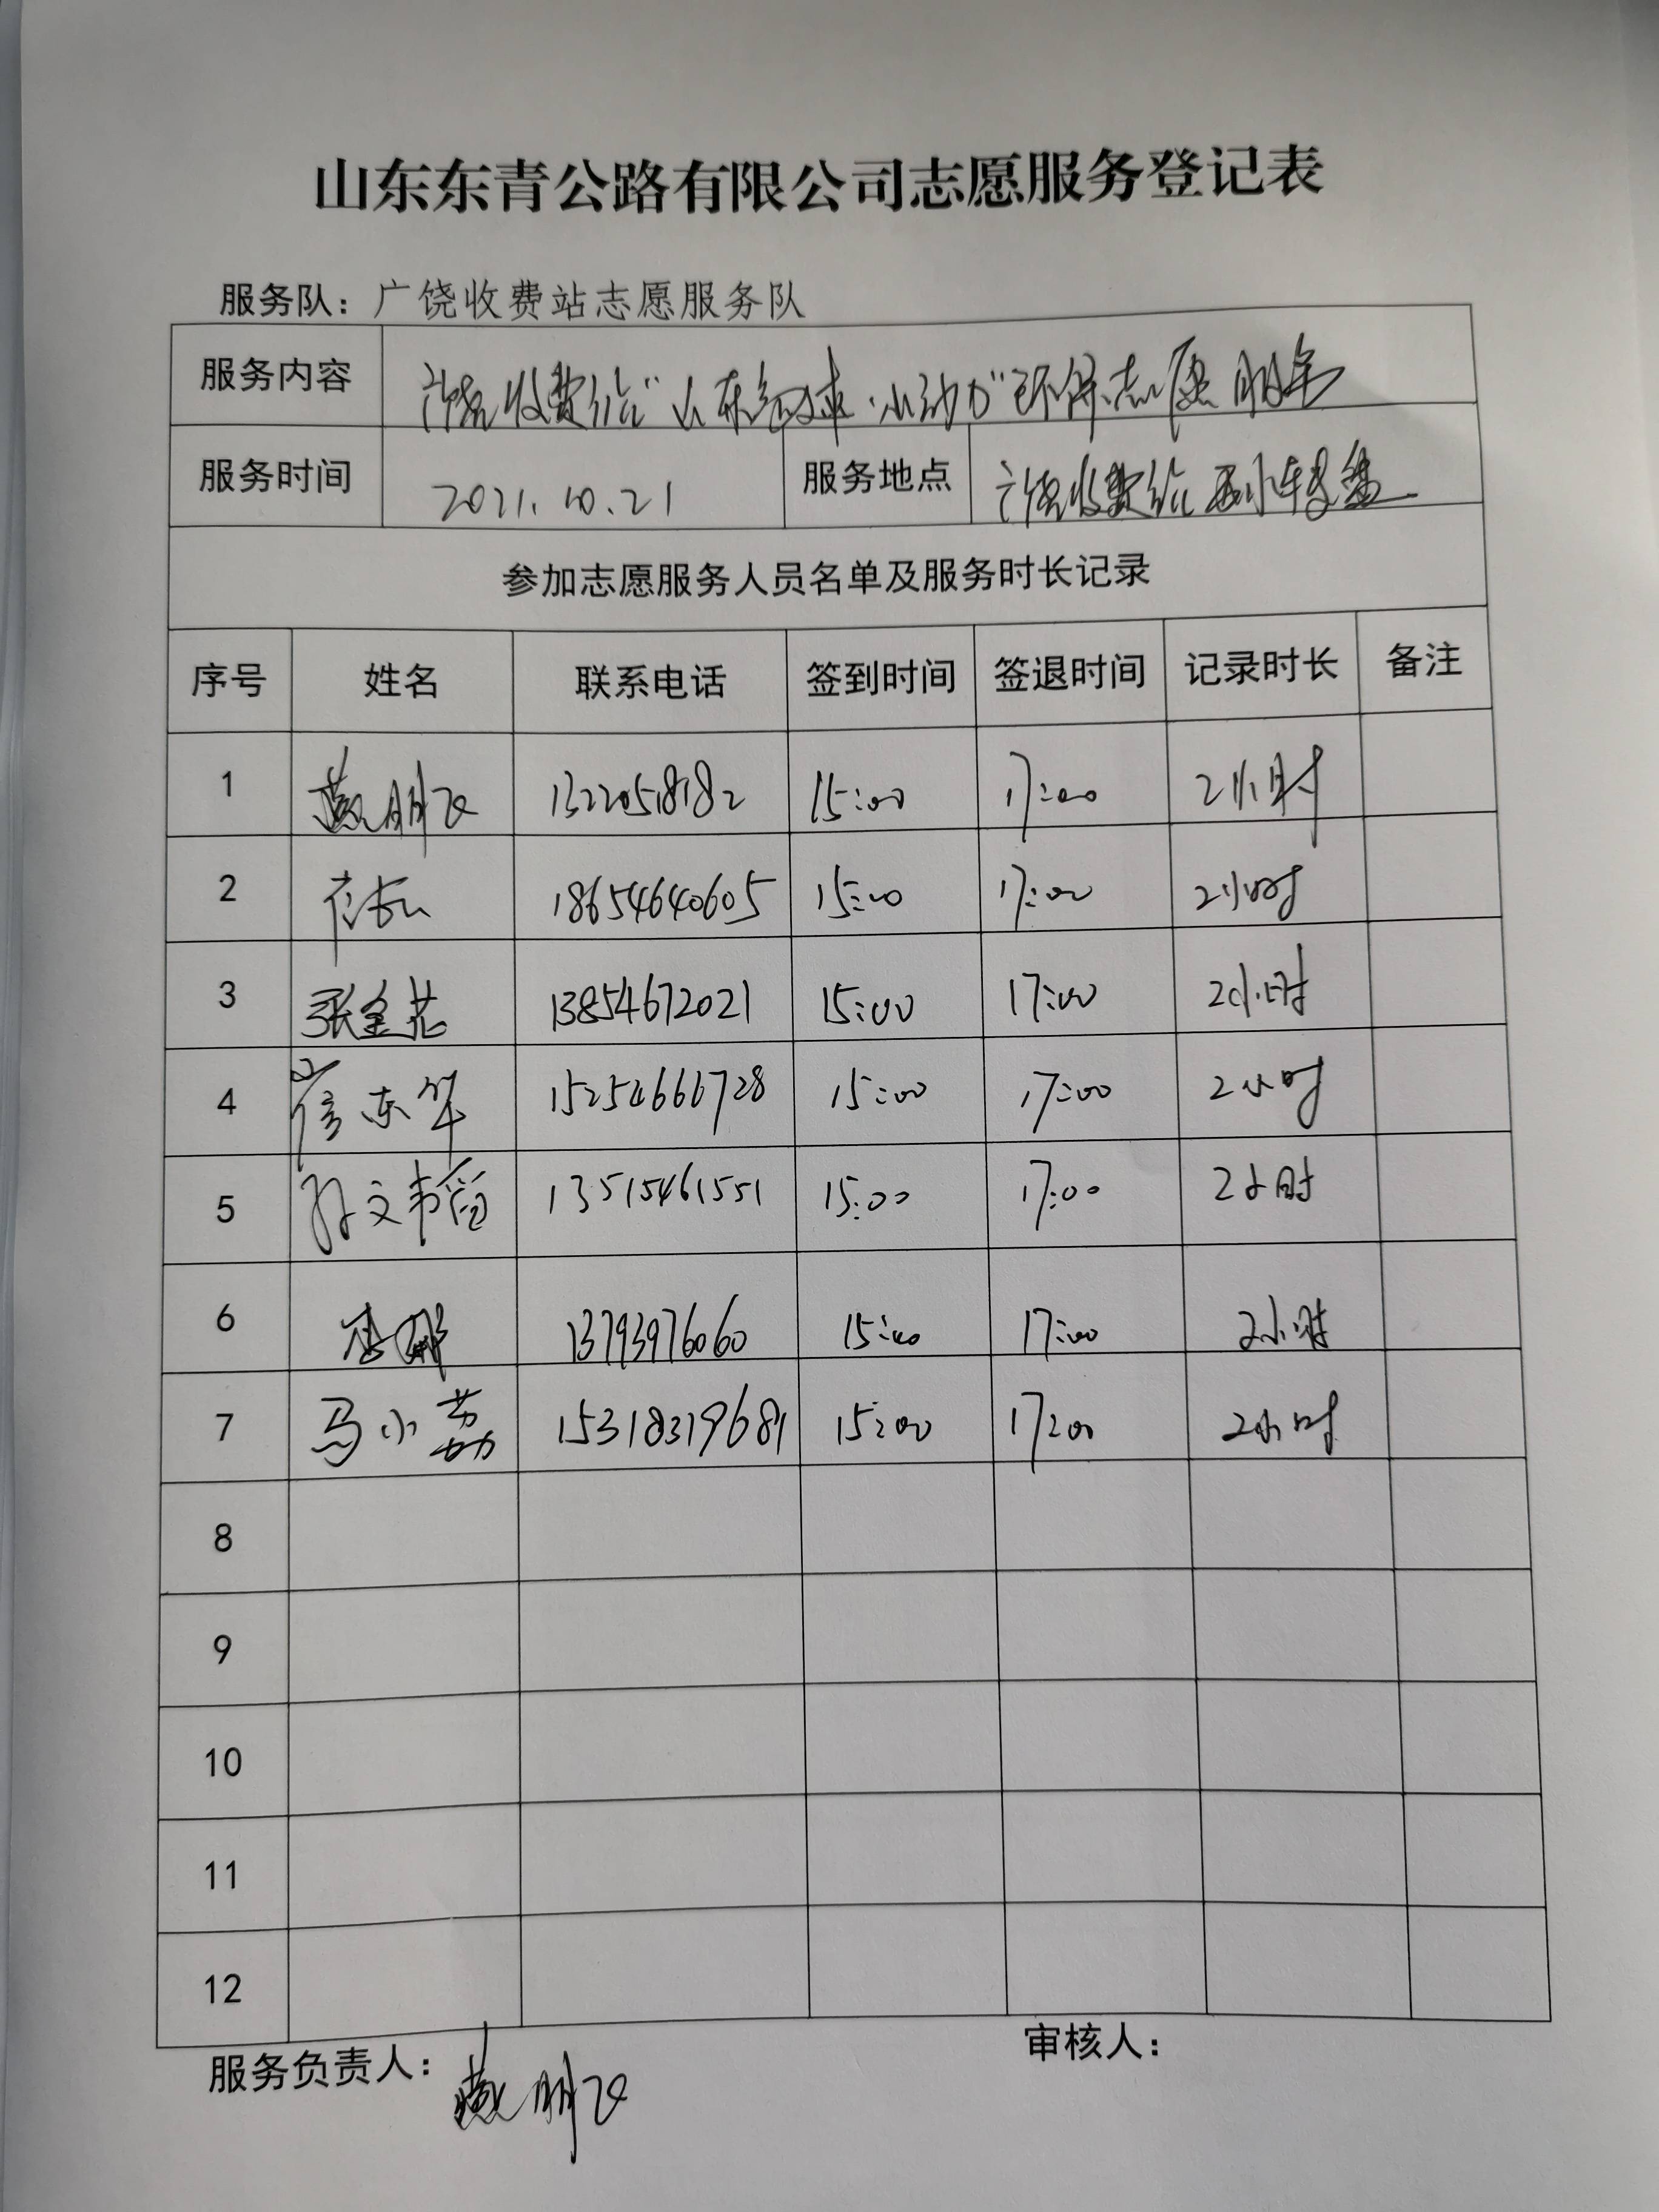 山东东青公路有限公司志愿服务登记表
服务队：广饶收费站志愿服务队
服务内容 广饶收费站“山东 ·小动力”环保志愿服务
服务时间 2021.10.21 服务地点 广饶收费站西小转盘
参加志愿服务人员名单及服务时长记录
序号 姓名 联系电话 签到时间 签退时间 记录时长 备注
1 燕朋飞 1322058182 15:00 17:00 2小时
2 18654640605 15:00 17:00 2小时
3 张金花 13854672021 15:00 17:00 2小时
4 东华 15254666728 15:00 17:00 2小时
5 孙文 13515461551 15:00 17:00 2小时
6 13793976060 15:00 17:00 2小时
7 马小荔 15318319681 15:00 17:00 2小时
8
9
10
11
12
服务负责人：燕朋飞 审核人：